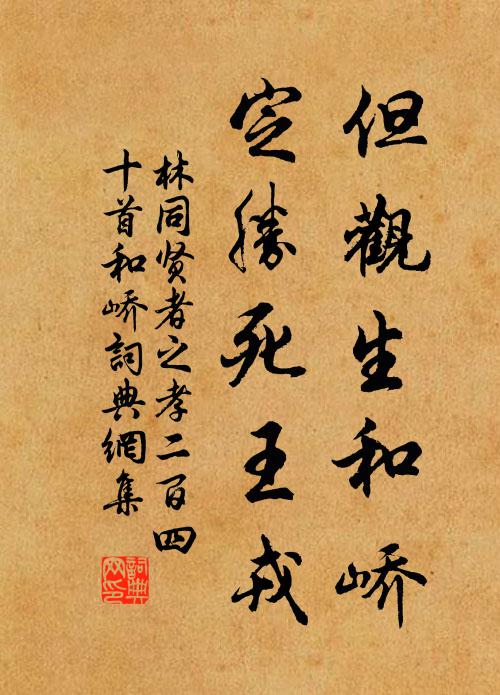 但觀生和峤
定勝死王戎
林同贤者之孝二百四
十首和峤詞典網集
詞典
网印